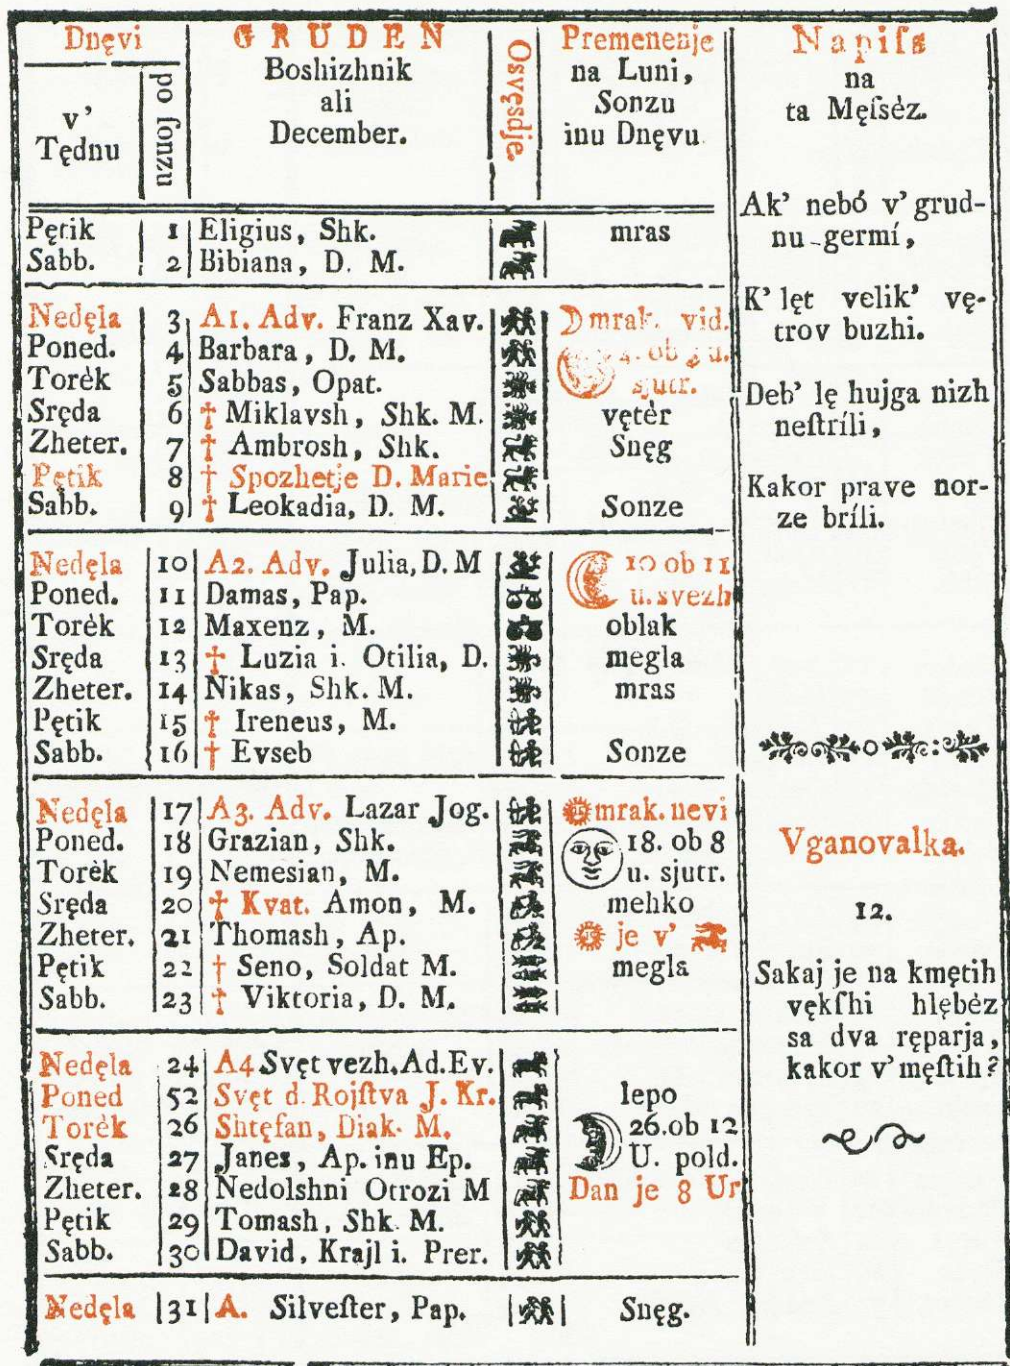 Dnęvi
v'
Tędnu
po ſonzu
GRUDEN
Boshizhnik
ali
December.
Osvęsdje.
Premenenje
na Luni,
Sonzu
inu Dnęvu
Pętik 1 Eligius, Shk. mras
Sabb. 2 Bibiana, D. M.
Nedęla 3 A1. Adv. Franz Xav. mrak. vid.
Poned. 4 Barbara, D. M. 4. ob 3 u.
Torėk 5 Sabbas, Opat. sjutr.
Sręda 6 † Miklavsh, Shk. M. vętėr
Zheter. 7 † Ambrosh, Shk. Snęg
Pętik 8 † Spozhetje D. Marie
Sabb. 9 † Leokadia, D. M. Sonze
Nedęla 10 A2. Adv. Julia, D. M 10 ob 11
Poned. 11 Damas, Pap. u. svezh
Torėk 12 Maxenz, M. oblak
Sręda 13 † Luzia i. Otilia, D. megla
Zheter. 14 Nikas, Shk. M. mras
Pętik 15 † Ireneus, M.
Sabb. 16 † Evseb Sonze
Nedęla 17 A3. Adv. Lazar Jog. mrak. nevi
Poned. 18 Grazian, Shk. 18. ob 8
Torėk 19 Nemesian, M. u. sjutr.
Sręda 20 † Kvat. Amon, M. mehko
Zheter. 21 Thomash, Ap. je v'
Pętik 22 † Seno, Soldat M. megla
Sabb. 23 † Viktoria, D. M.
Nedęla 24 A4 Svęt vezh. Ad. Ev.
Poned 52 Svęt d. Rojſtva J. Kr. lepo
Torėk 26 Shtęfan, Diak. M. 26. ob 12
Sręda 27 Janes, Ap. inu Ep. U. pold.
Zheter. 28 Nedolshni Otrozi M Dan je 8 Ur
Pętik 29 Tomash, Shk. M.
Sabb. 30 David, Krajl i. Prer.
Nedęla 31 A. Silveſter, Pap. Snęg.
Napiſs
na
ta Męſsėz.
Ak' nebó v' grud-
nu germí,
K' lęt velik' vę-
trov buzhi.
Deb' lę hujga nizh
neſtríli,
Kakor prave nor-
ze bríli.
Vganovalka.
12.
Sakaj je na kmętih
vękſhi hlębėz
sa dva ręparja,
kakor v' męſtih?